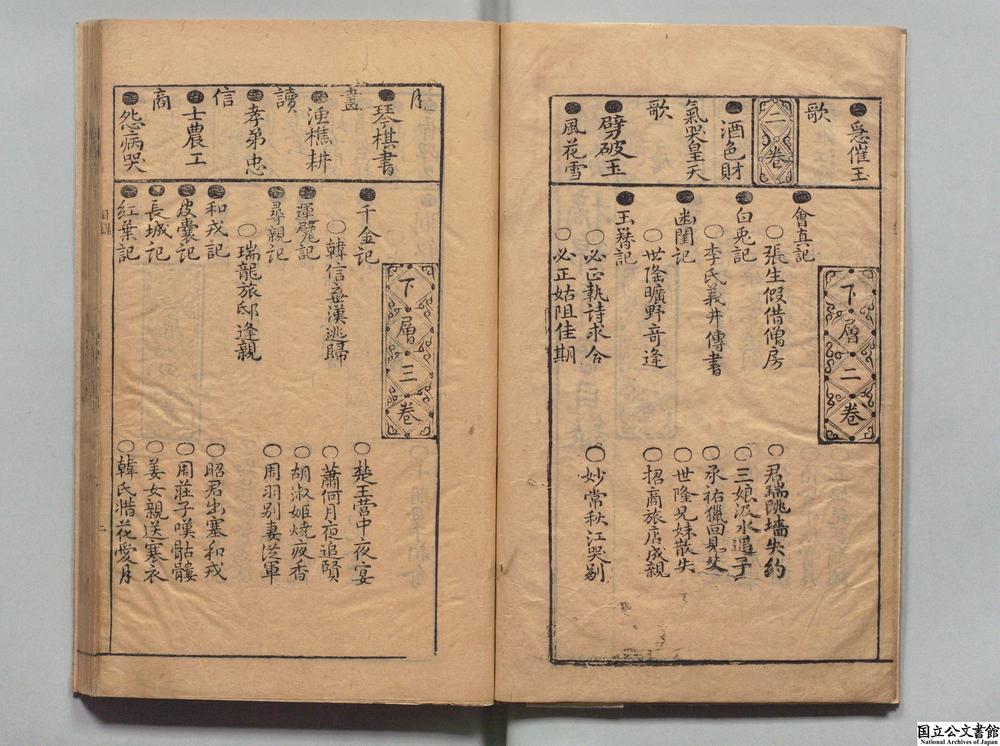 急催玉
歌
二卷
酒色財
氣哭皇天
歌
劈破玉
風花雪
下層二卷
會真記
○張生假借僧房
○君瑞跳墻失約
白兎記
○三娘汲水遇子
○李氏義井傳書
○承祐獵回見父
幽閨記
○世隆兄妹散失
○世隆曠野竒逢
○招商旅店成親
玉簪記
○必正執詩求合
○妙常秋江哭别
○必正姑阻佳期
月
琴棋書
畫
漁樵耕
讀
孝弟忠
信
士農工
商
怨病哭
下層三卷
千金記
○楚王營中夜宴
○韓信棄漢逃歸
○蕭何月夜追賢
運甓記
○胡淑姬燒夜香
尋親記
○周羽别妻從軍
○瑞龍旅邸逢親
和戎記
○昭君出塞和戎
皮囊記
○周莊子嘆骷髏
長城記
○姜女親送寒衣
紅葉記
○韓氏惜花愛月
目錄
二
国立公文書館
National Archives of Japan